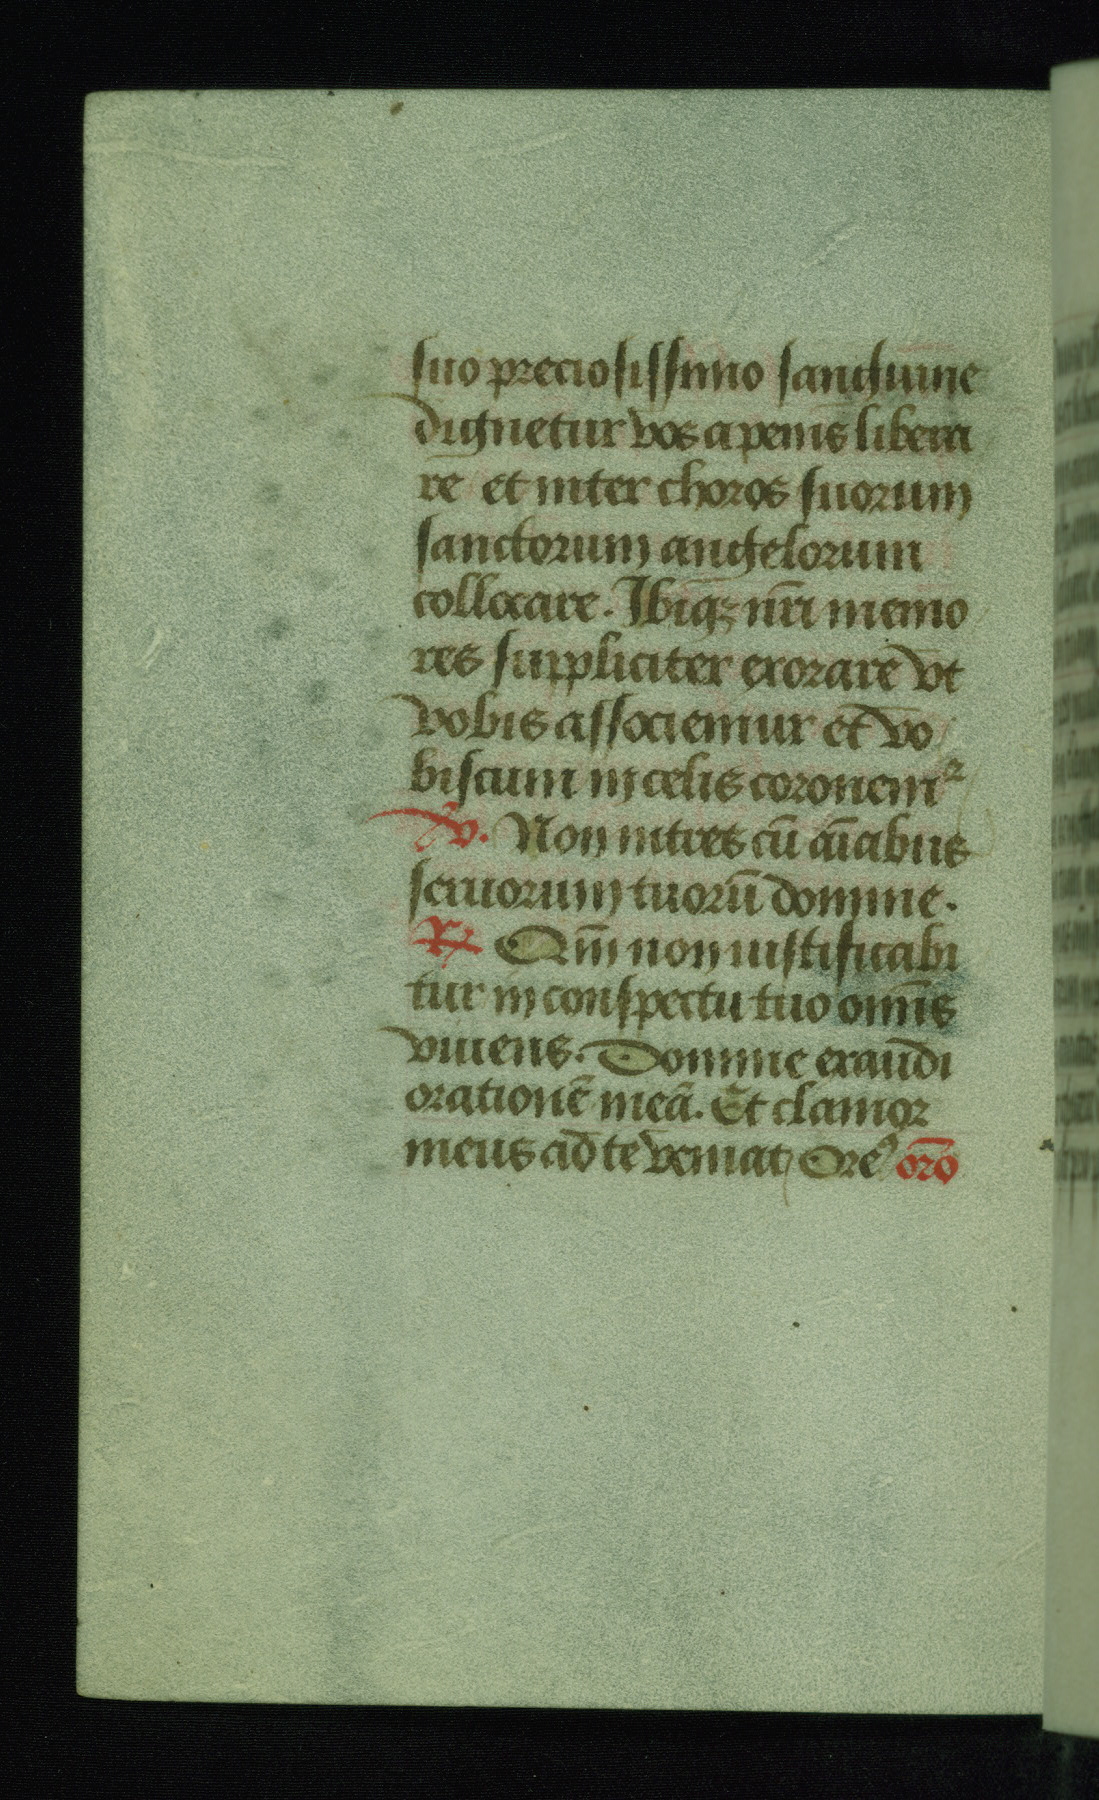 suo preciosissimo sanguine
dignetur vos a penis libera
re et inter choros suorum
sanctorum angelorum
collocare. Ibiqꝫ nr̄i memo
res suppliciter exorare vt
vobis associemur et vo
biscum in celis coronemꝛ
℣. Non intres cū aīabus
seruorum tuorū domine.
℟ Qm̄ non iustificabi
tur in conspectu tuo om̄is
viuens. Domine exaudi
orationē meā. Et clamor
meus ad te veniat Oreꝰ or̄o